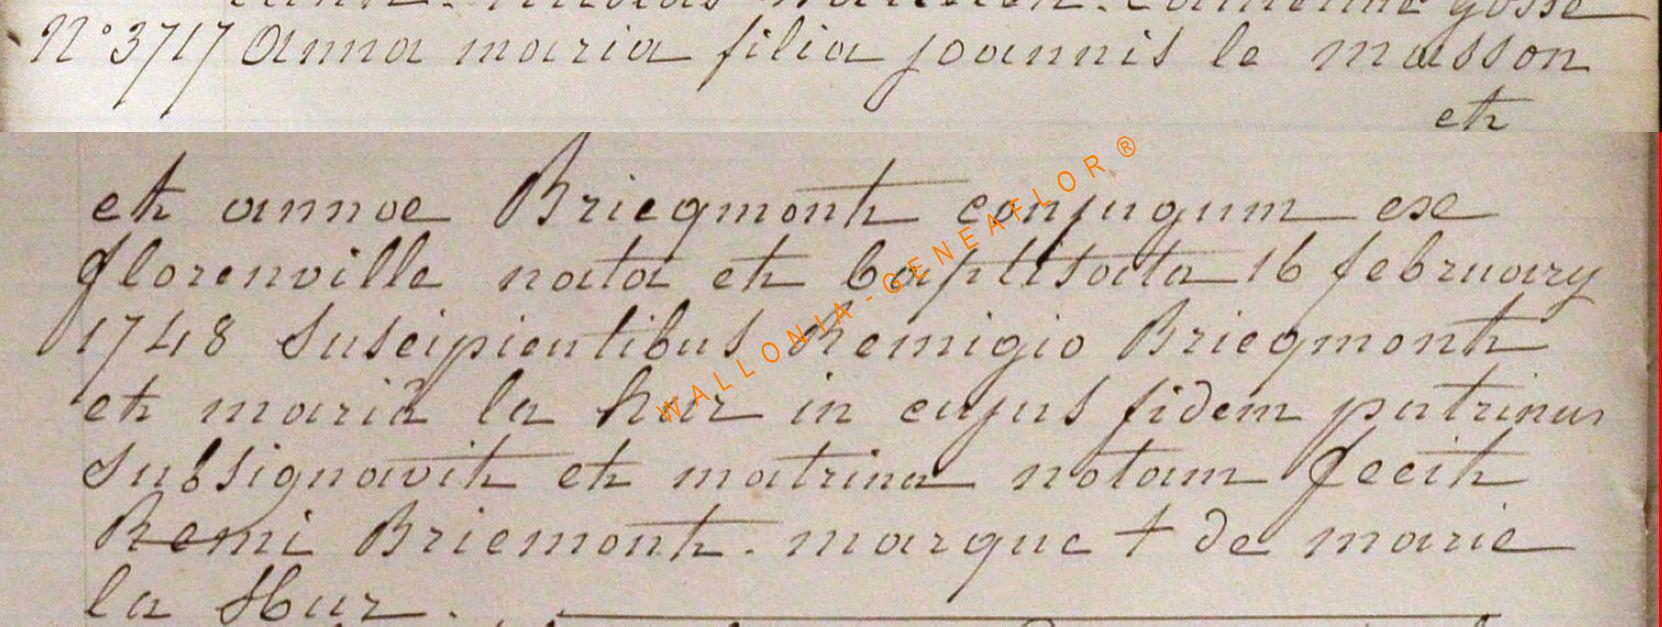 N° 3717 Anna maria filia joannis le masson
et
et annae Briegmont conjugum ex
florenville nata et baptisata 16 february
1748 Suscipientibus Remigio Briegmont
et maria la hur in cujus fidem patrinus
subsignavit et matrina notam fecit
Remi Briemont. marque + de marie
la Hur.
WALLONIA-GENEAFLOR ®